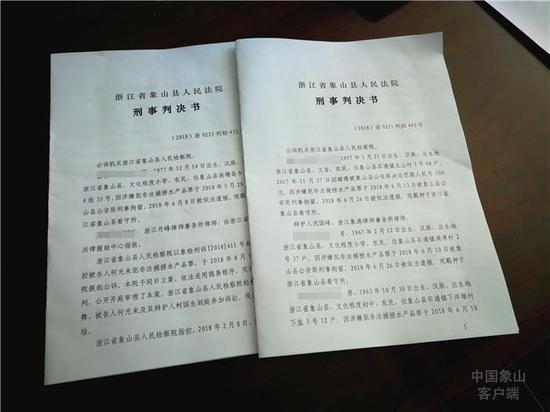 浙江省象山县人民法院
刑事判决书
(2018)浙0225刑初
公诉机关浙江省象山县人民检察院。
1977年12月14日出生,汉族,
浙江省象山县,文化程度小学,农民,住象山县高塘岛乡
4组33号。因涉嫌犯非法捕捞水产品罪于2018年5月29
山县公安局刑事拘留,2018年6月8日被依法逮捕。现羁押于
象山县看守所。
浙江丹峰律师事务所律师,由浙江省
法律援助中心指派。
浙江省象山县人民检察院以象检刑诉[2018]411号
控被告人何光来犯非法捕捞水产品罪,于2018年8月
院提起公诉。本院于同日立案,依法适用简易程序,实行
判,公开开庭审理了本案。浙江省象山县人民检察院指派
被告人何光来及其辩护人柯国生到庭参加诉讼。现
结。
浙江省象山县人民检察院指控,2018年2月8日,
浙江省象山县人民法院
刑事判决书
(2018)浙0225刑初443号
公诉机关浙江省象山县人民检察院。
1977年1月21日出生,汉族,出生地
浙江省象山县,文盲,农民,住象山县石浦镇北山村1号68户。
2017年11月27日因赌博被象山县公安局决定罚款人民币500
元。因涉嫌犯非法捕捞水产品罪于2018年6月13日被象山县公
安局刑事拘留,2018年6月26日被依法逮捕。现羁押于象山
县看守所。
辩护人沈国峰,浙江素海律师事务所律师。
1967年2月12日出生,汉族,出生地
浙江省象山县,文化程度小学,农民,住象山县石浦镇渔湾村2
号37户。因涉嫌犯非法捕捞水产品罪于2018年6月10日被象
山县公安局刑事拘留,2018年6月26日被依法逮捕。现羁押于
象山县看守所。
男,1963年10月30日出生,汉族,出生地
浙江省象山县,文化程度初中,农民,住象山县石浦镇下洋墩村
下盘3号12户。因涉嫌犯非法捕捞水产品罪于2018年6月10
1
中国象山
客户端